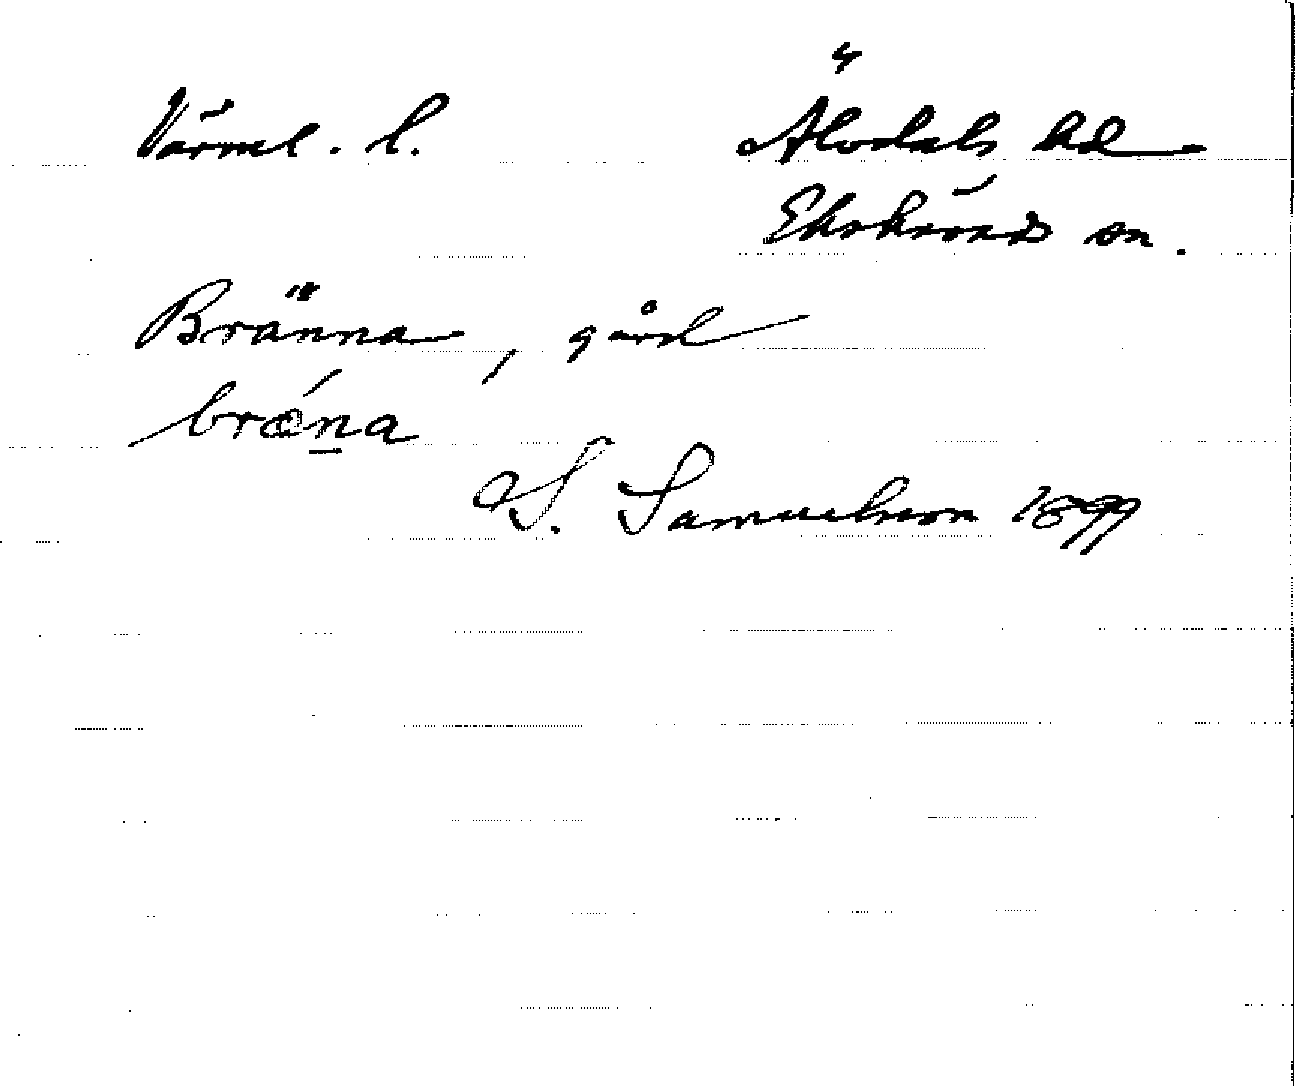 Värml. l. Älvdals hd
Ekshärads sn.
Bränna, gård
bræ´n̲a
S. Samuelsson 1899